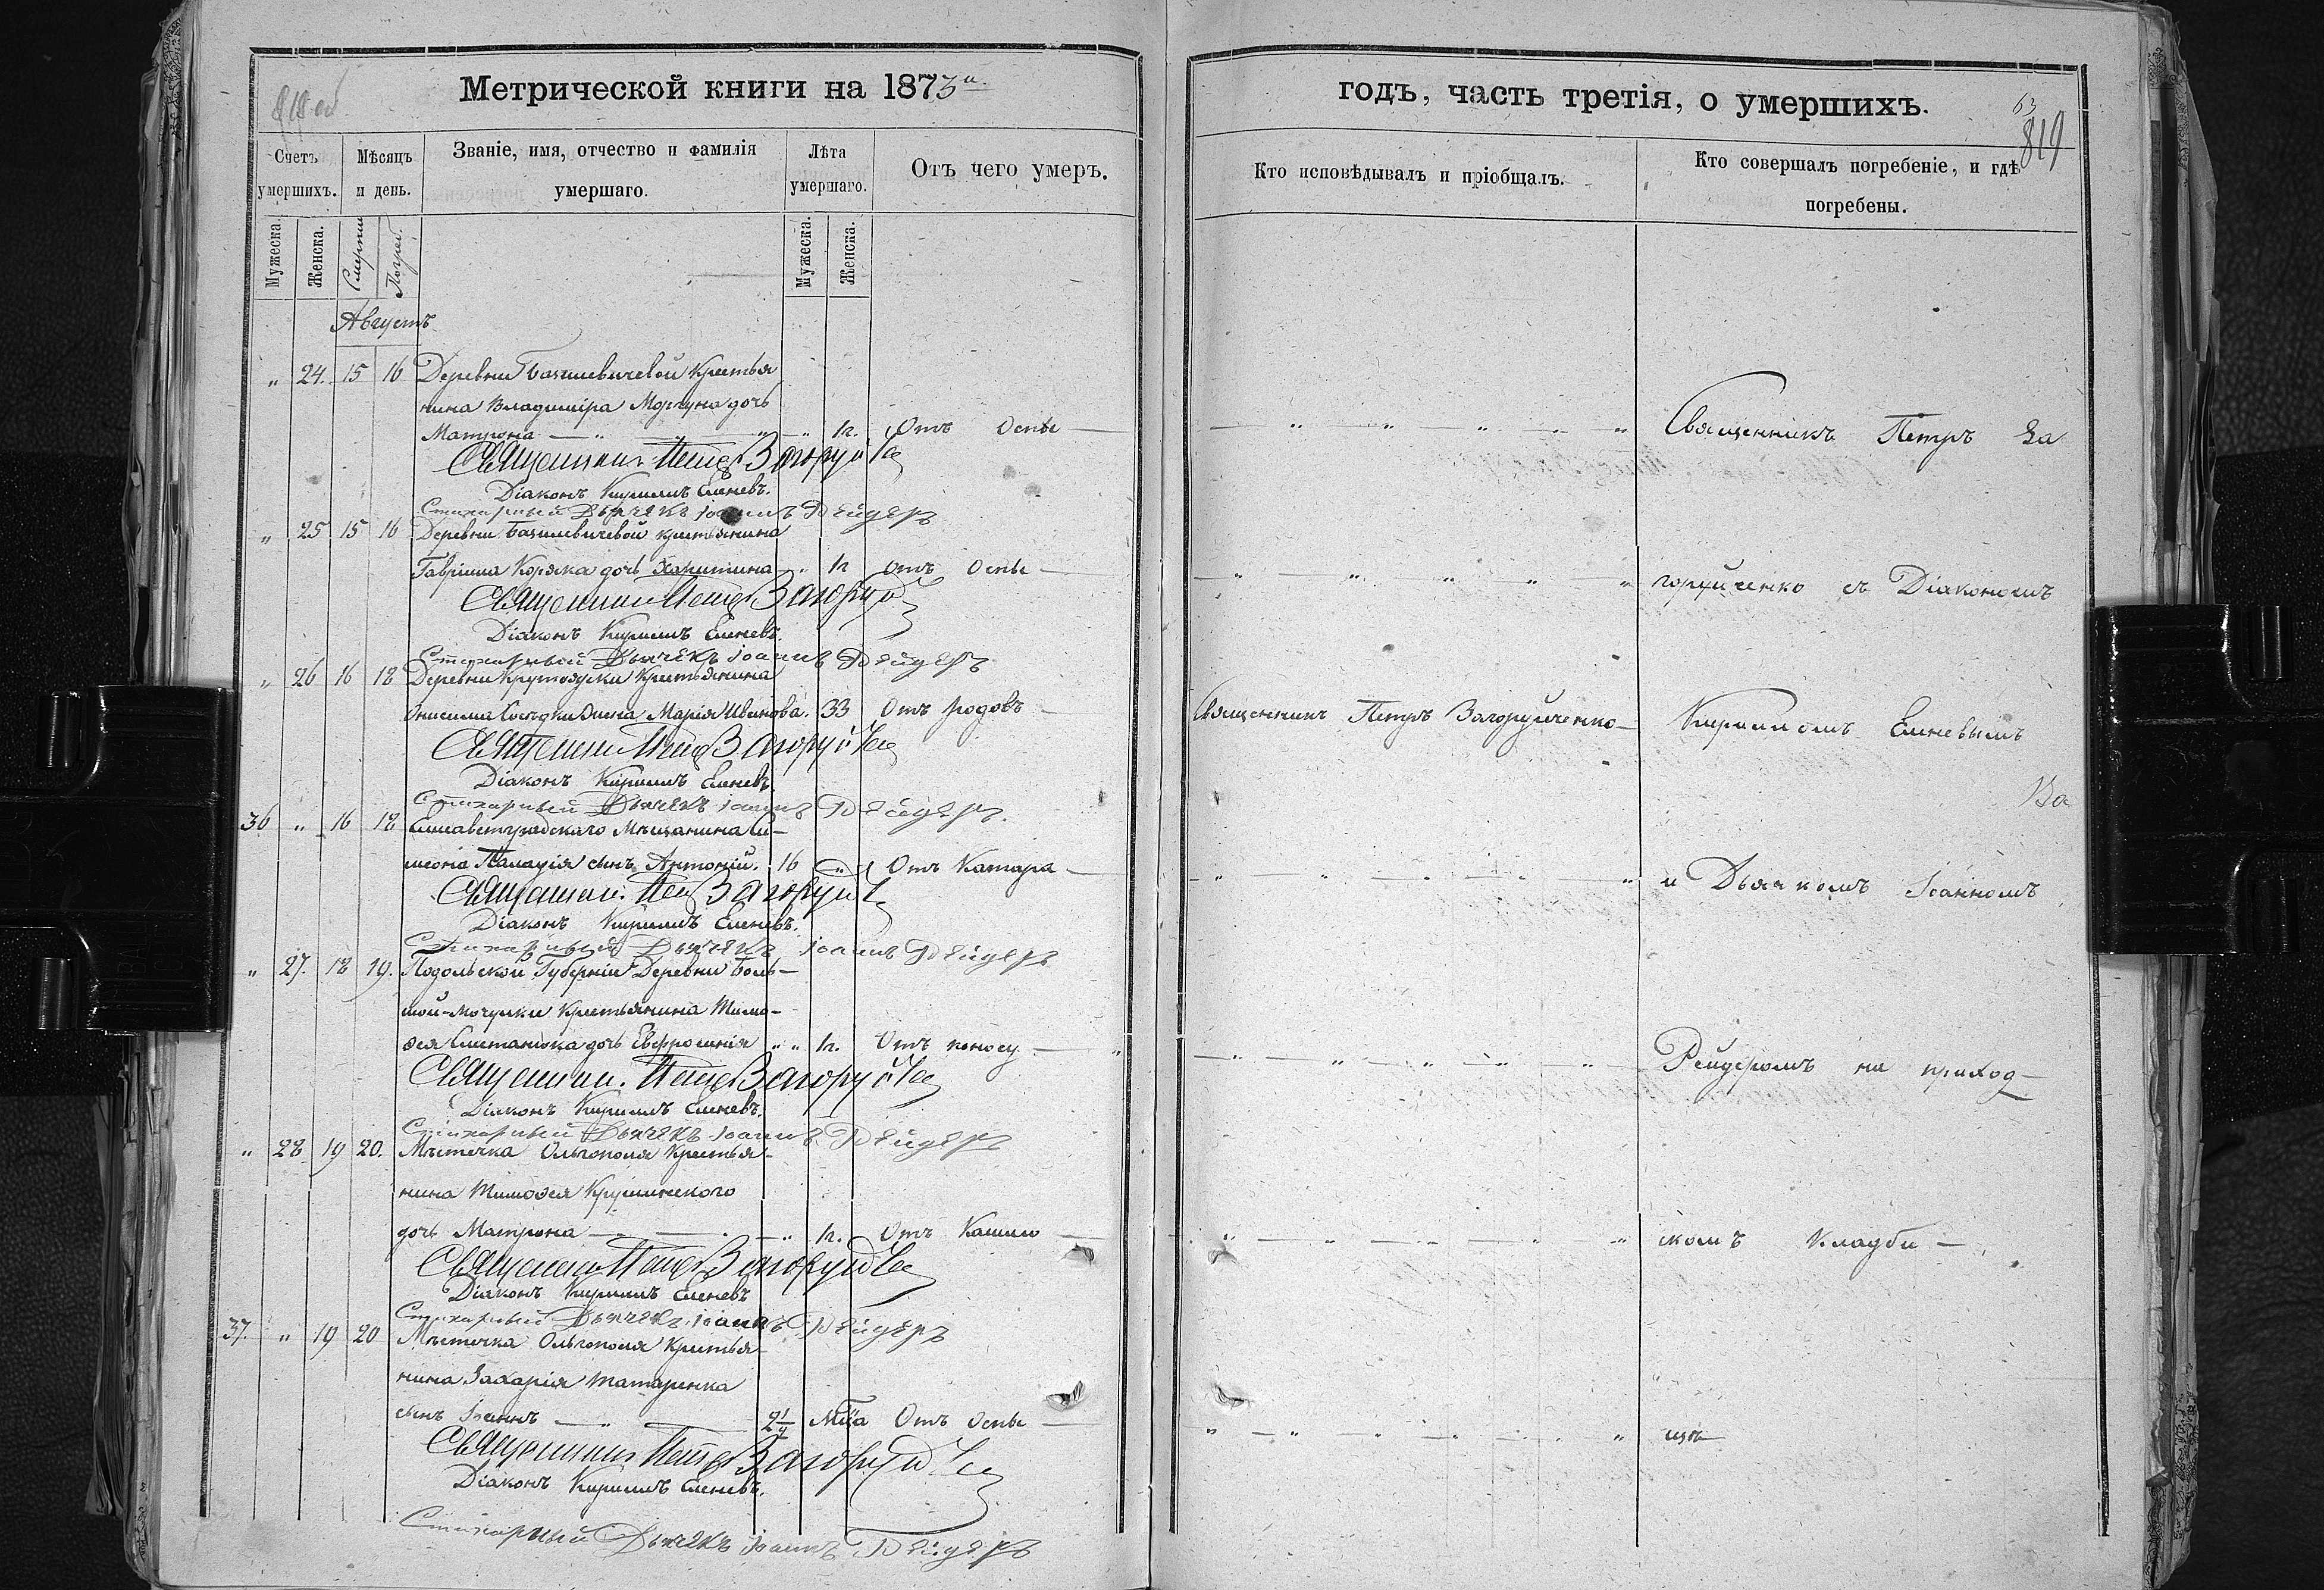 Метрической книги на 1873й
годъ, часть третія, о умершихъ.
63
819
Счетъ умершихъ.
Мѣсяцъ и день.
Званіе, имя, отчество и фамилія умершаго.
Лѣта умершаго.
Отъ чего умеръ.
Кто исповѣдывалъ и пріобщалъ.
Кто совершалъ погребеніе, и гдѣ погребены.
Мужеска.
Женска.
Смерти
Погреб.
Мужеска.
Женска.
Августъ
" 24. 15 16 Деревни Крестья
нина Владиміра Моргуна дочь
Матрона — " — " 1г. Отъ Оспы —
Священникъ Петръ За
Священникъ Петръ Загоруйче
Діаконъ Кириллъ Еленевъ.
Стихарный Дьячекъ Іоаннъ Рейдеръ
" 25 15 16 Деревни крестьянина
Гавріила Коряка дочь Харитина " 1г отъ Оспы —
горуйченко съ Діакономъ
Священникъ Петръ Загоруй
Діаконъ Кириллъ Еленевъ.
Стихарный Дьячекъ Іоаннъ Рейдеръ
" 26 16 18 Деревни Крутоярки Крестьянина
Онисима жена Марія Иванова. 33 Отъ родовъ —
Священникъ Петръ Загоруйченко —
Кирилломъ Еленевымъ
Священник Петръ Загоруйче
Діаконъ Кириллъ Еленевъ.
Стихарный Дьячекъ Іоаннъ Рейдеръ.
36 " 16 18 Елисаветградскаго Мѣщанина Си-
меона Паладія сынъ Антоній. 16 " Отъ Катара —
и Дьячкомъ Іоанномъ
Священник. Петръ Загоруйче
Діаконъ Кириллъ Еленевъ.
Стихарный Дьячекъ Іоаннъ Рейдеръ
" 27. 18 19. Подольской Губерніи Деревни Боль-
шой-Мочулки Крестьянина Тимо-
ѳея Сметанюка дочь Евфросинія " " 1г. Отъ поносу —
Рейдеромъ на приход-
Священник. Петръ Загоруйче
Діаконъ Кириллъ Еленевъ.
Стихарный Дьячекъ Іоаннъ Рейдеръ
" 28 19 20. Мѣстечка Ольгополя Крестья-
нина Тимоѳея Крушинского
дочь Матрона — " 1г. Отъ Кашлю —
скомъ Кладби —
Священник Петръ Загоруйче
Діаконъ Кириллъ Еленевъ
Стихарный Дьячекъ Іоаннъ Рейдеръ
37. " 19 20 Мѣстечка Ольгополя Крестья-
нина Захарія Татаренка
сынъ Іоаннъ — " — 2 1/4 М‑ца Отъ Оспы —
щѣ —
Священникъ Петръ Загоруйче
Діаконъ Кириллъ Еленевъ.
Стихарный Дьячекъ Іоаннъ Рейдеръ